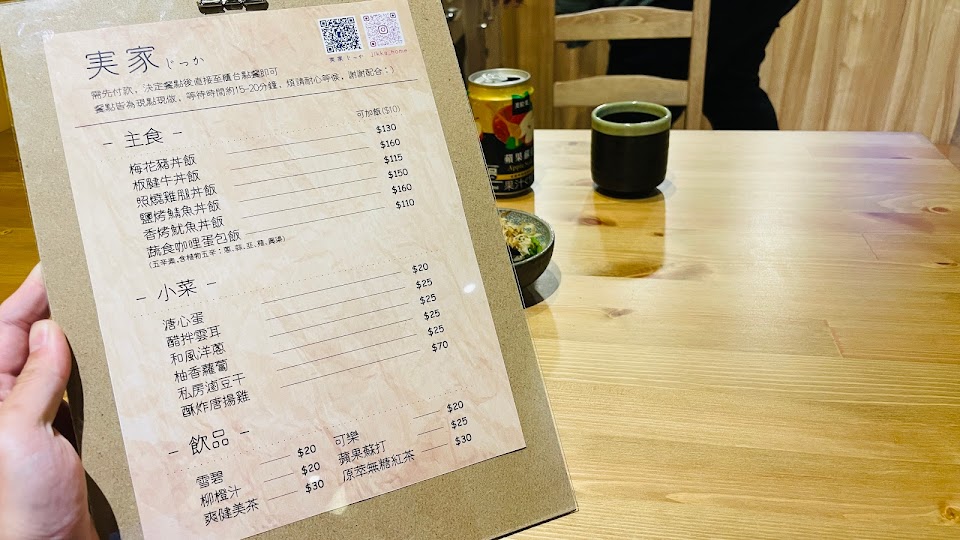 実家 じっか
実家 じっか jikka_home
需先付款，決定餐點後直接至櫃台點餐即可
餐點皆為現點現做，等待時間約15-20分鐘，煩請耐心等候，謝謝配合：)
- 主食 -
可加飯($10)
梅花豬丼飯 $130
板腱牛丼飯 $160
照燒雞腿丼飯 $115
鹽烤鯖魚丼飯 $150
香烤魷魚丼飯 $160
蔬食咖哩蛋包飯 $110
- 小菜 -
溏心蛋 $20
醋拌雲耳 $25
和風洋蔥 $25
柚香蘿蔔 $25
私房滷豆干 $25
酥炸唐揚雞 $70
- 飲品 -
雪碧 $20 可樂 $20
柳橙汁 $20 蘋果蘇打 $25
爽健美茶 $30 原萃無糖紅茶 $30